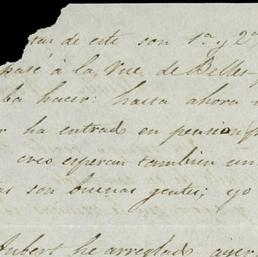 de este son 1ª y 2ª
pasé à la Rue de Belles
ba hacer: hasta ahora
ha entrado en pension
creo esperan tambien un
as son buenas gentes; yo
Aubert he arreglado ayer